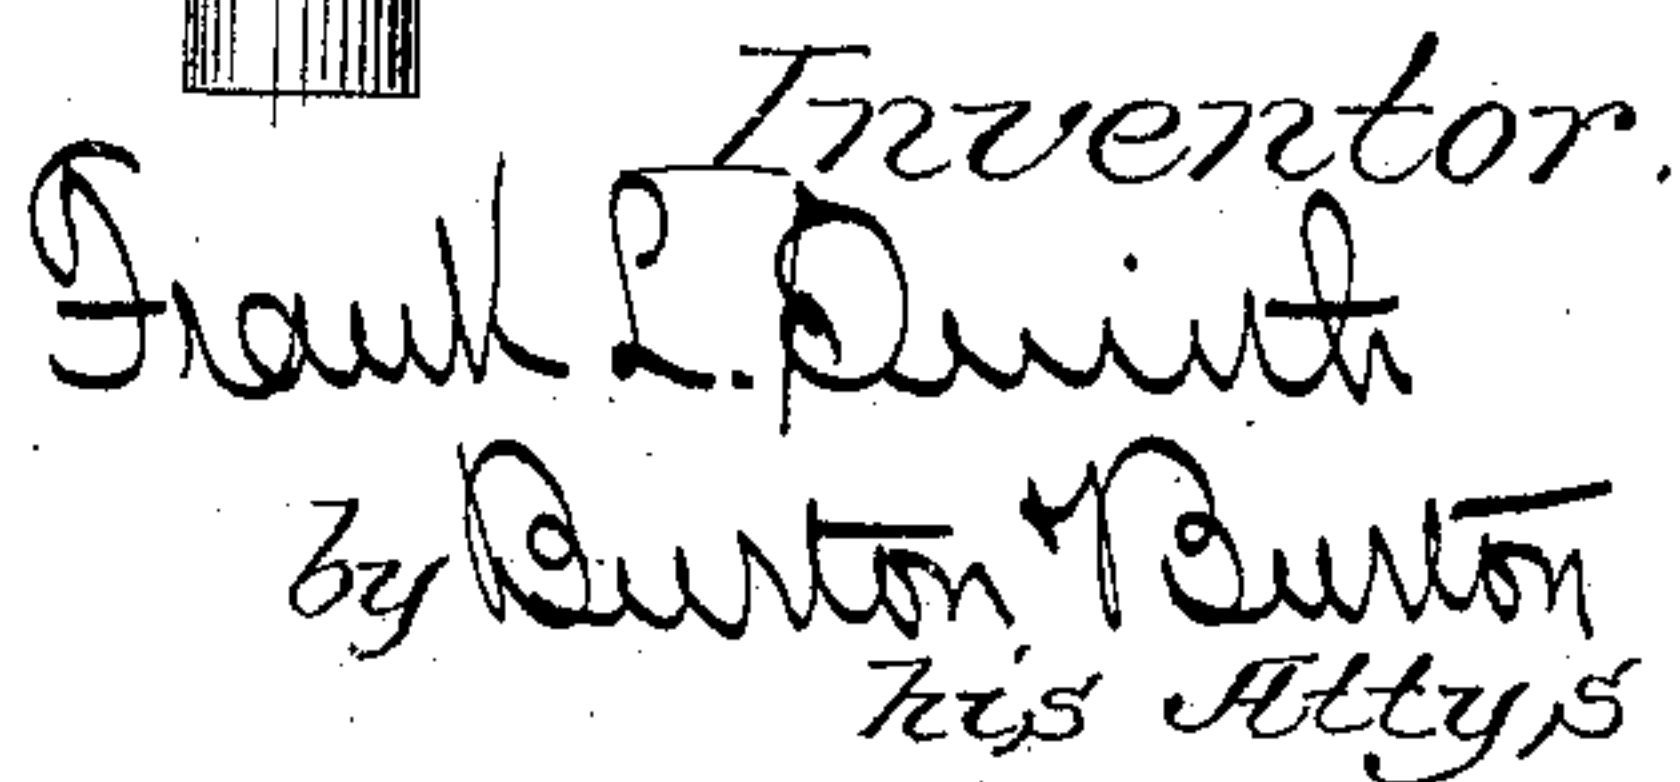 Inventor.
Frank L. Smith
by Burton & Burton
his Atty's